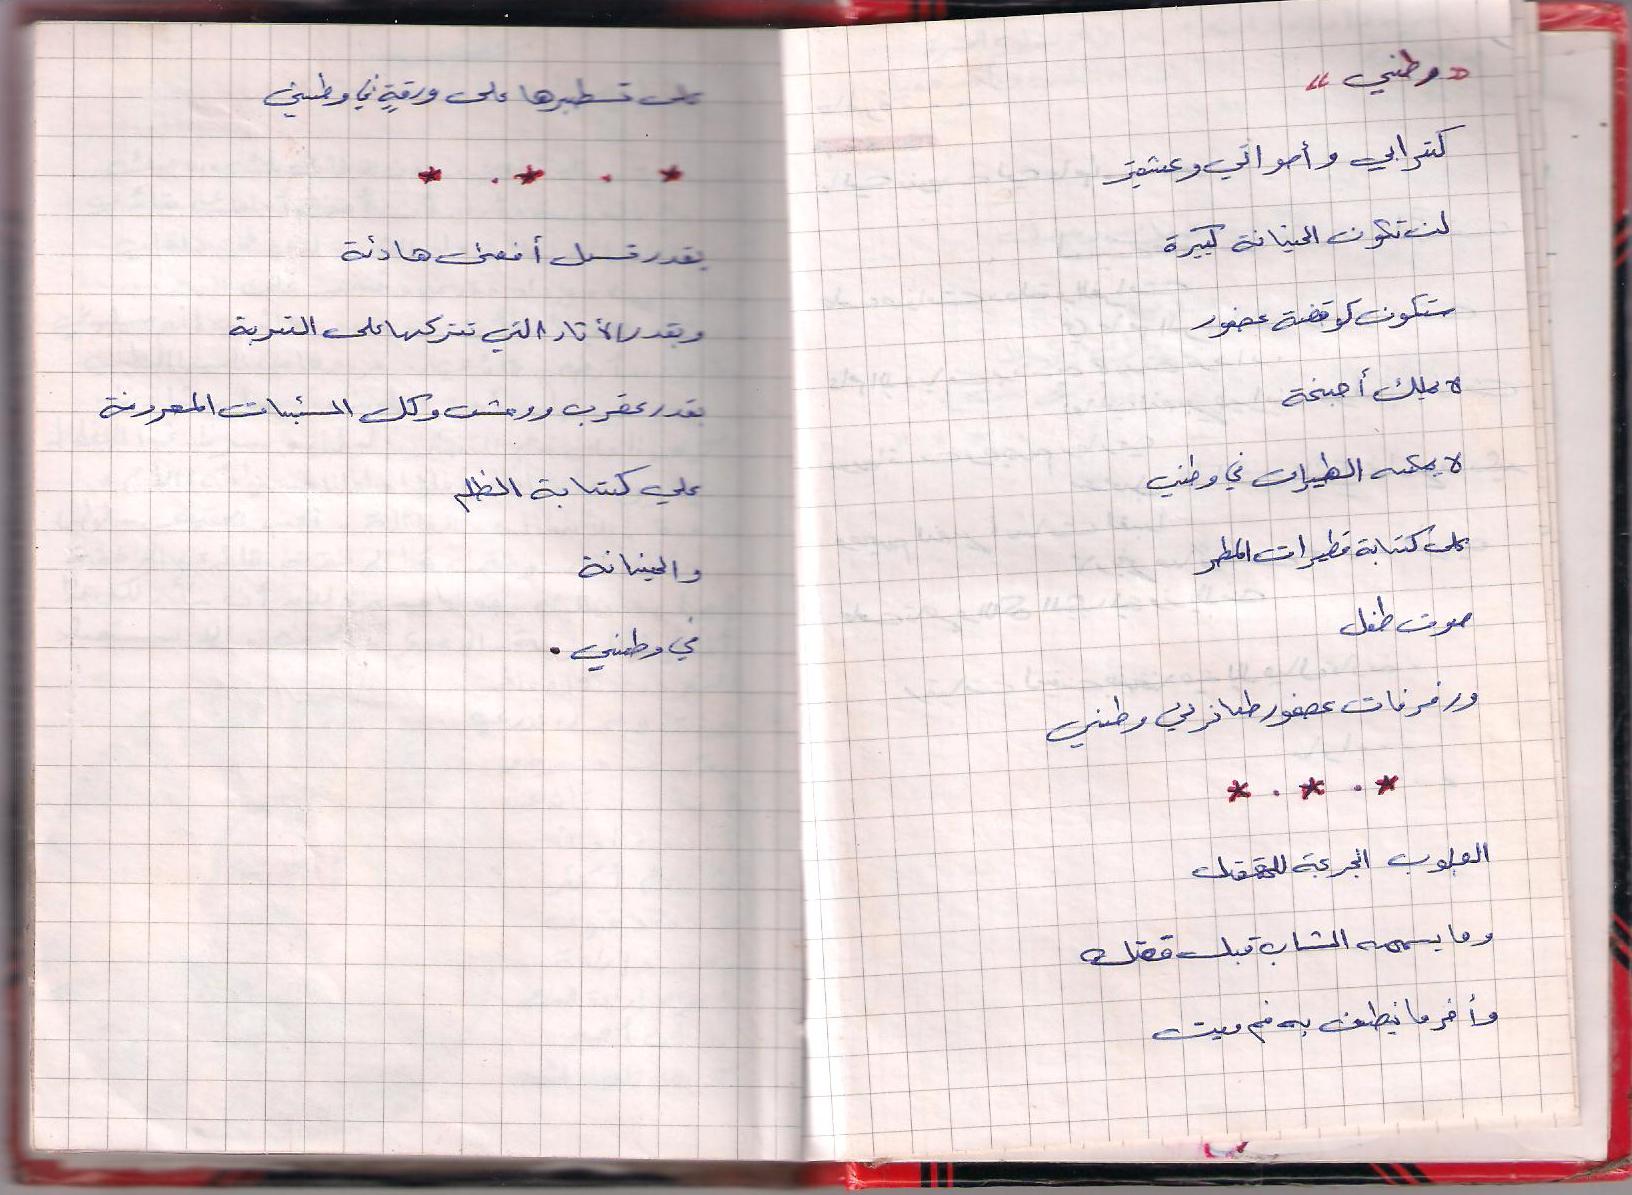 « وطني »
كترابي وأصواتي وعشيقتي
لن تكون الخيانة كبيرة
ستكون كوقفة عصفور
لا يملك أجنحة
لا يمكنه الطيران في وطني
على كتابة قطرات المطر
صوت طفل
ورفرفات عصفور طائر في وطني
* . * . *
القلوب الجرعة
وما يسمعه الشاب قبل قتله
وأخر ما ينطق به فم ميت
على تسطيرها على ورقةٍ في وطني
* . * . *
بقدر تسلل أفعى هادئة
وبقدر الأثار التي تتركها على التربة
بقدر عقرب ووحش وكل السيئات المعروفة
على كتابة الظلم
والخيانة
في وطني .